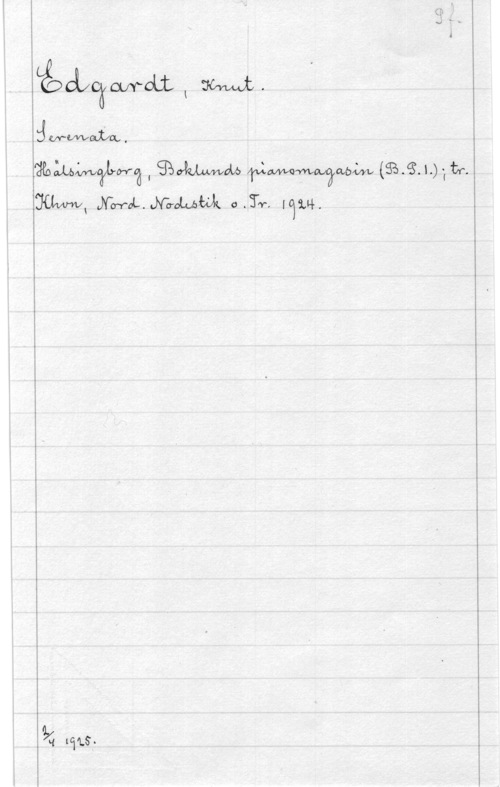 9 f.
Edgardt, Knut.
Serenata.
Hälsingborg, Boklunds pianomagasin (B.P.1.); tr.
Khvn, Nord. Nodestik o. Tr. 1924.
2/4 1925.